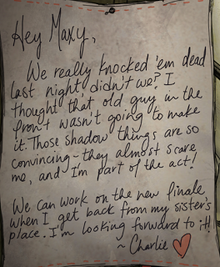 Hey Maxy,
We really knocked 'em dead
last night, didn't we? I
thought that old guy in the
front wasn't going to make
it. Those shadow things are so
convincing - they almost scare
me, and I'm part of the act!
We can work on the new finale
when I get back from my sister's
place. I'm looking forward to it!
~ Charlie